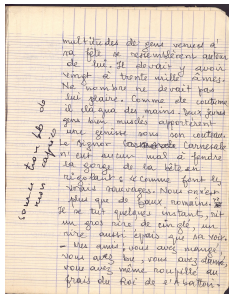 multitudes de gens venues à
sa fête se rassemblèrent autour
de lui. Il devait y avoir
vingt à trente mille âmes.
Ce nombre ne devait pas
lui plaire. Comme de coutume
il claqua des mains. Trois jeunes
gens bien musclés apportèrent
une génisse sans son couteau.
Le Signor Carnevale
n'eut aucun mal à fendre
la gorge de la bête en
rigolant « comme font les
voyous sauvages. Nous on est
plus que de faux romains »
Il se tut quelques instants, rit
un gros rire de cinglé, un
rire aussi épais que sa voix
- Mes amis, vous avez mangé,
vous avez bu, vous avez dansé,
vous avez même roupillé au
frais du Roi de
mon caprice